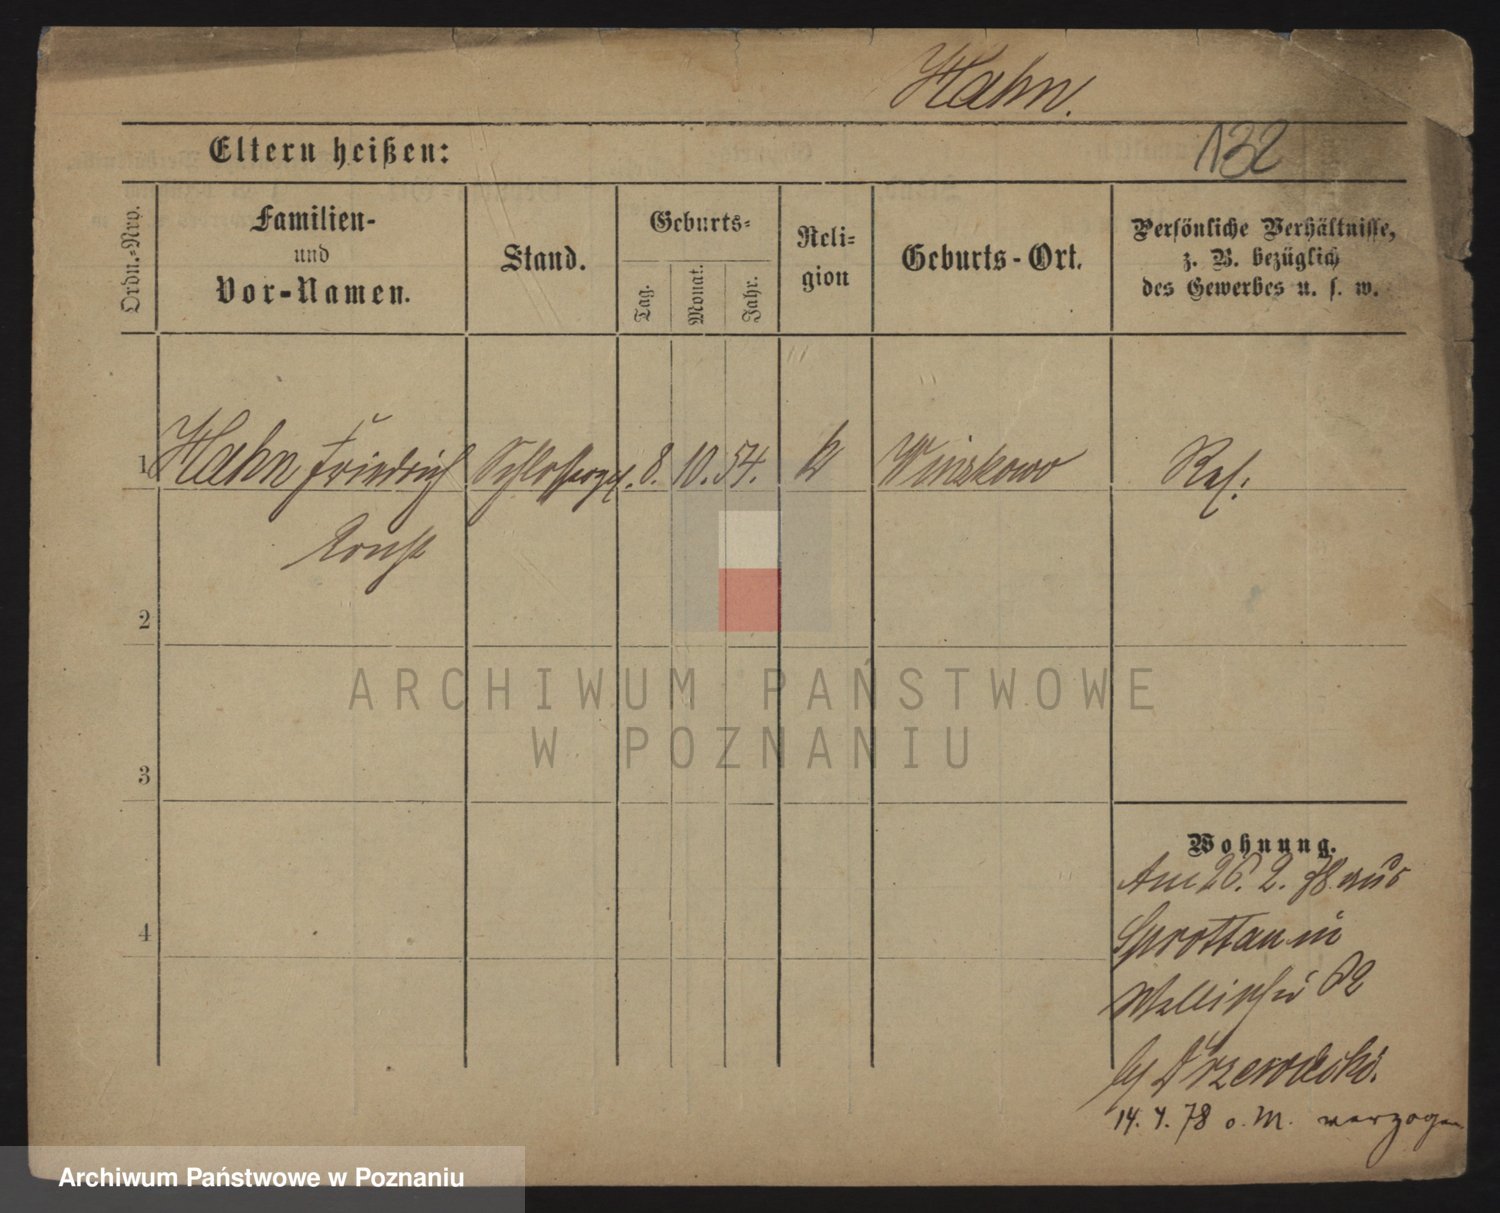 Hahn.
132
Eltern heißen:
Ordn.-Nro.
Familien-
und
Vor-Namen.
Stand.
Geburts-
Tag.
Monat.
Jahr.
Reli-
gion
Geburts-Ort.
Persönliche Verhältnisse,
z. B. bezüglich
des Gewerbes u. s. w.
1 Hahn Friedrich Schlosserges. 8. 10. 54. k Winskowo Res.
Ernst
2
3
4
Wohnung.
Am 26. 2. 78 aus
Sprottau in
Wallischei
bei
14. 4. 78 o. M. verzogen
ARCHIWUM PAŃSTWOWE
W POZNANIU
Archiwum Państwowe w Poznaniu